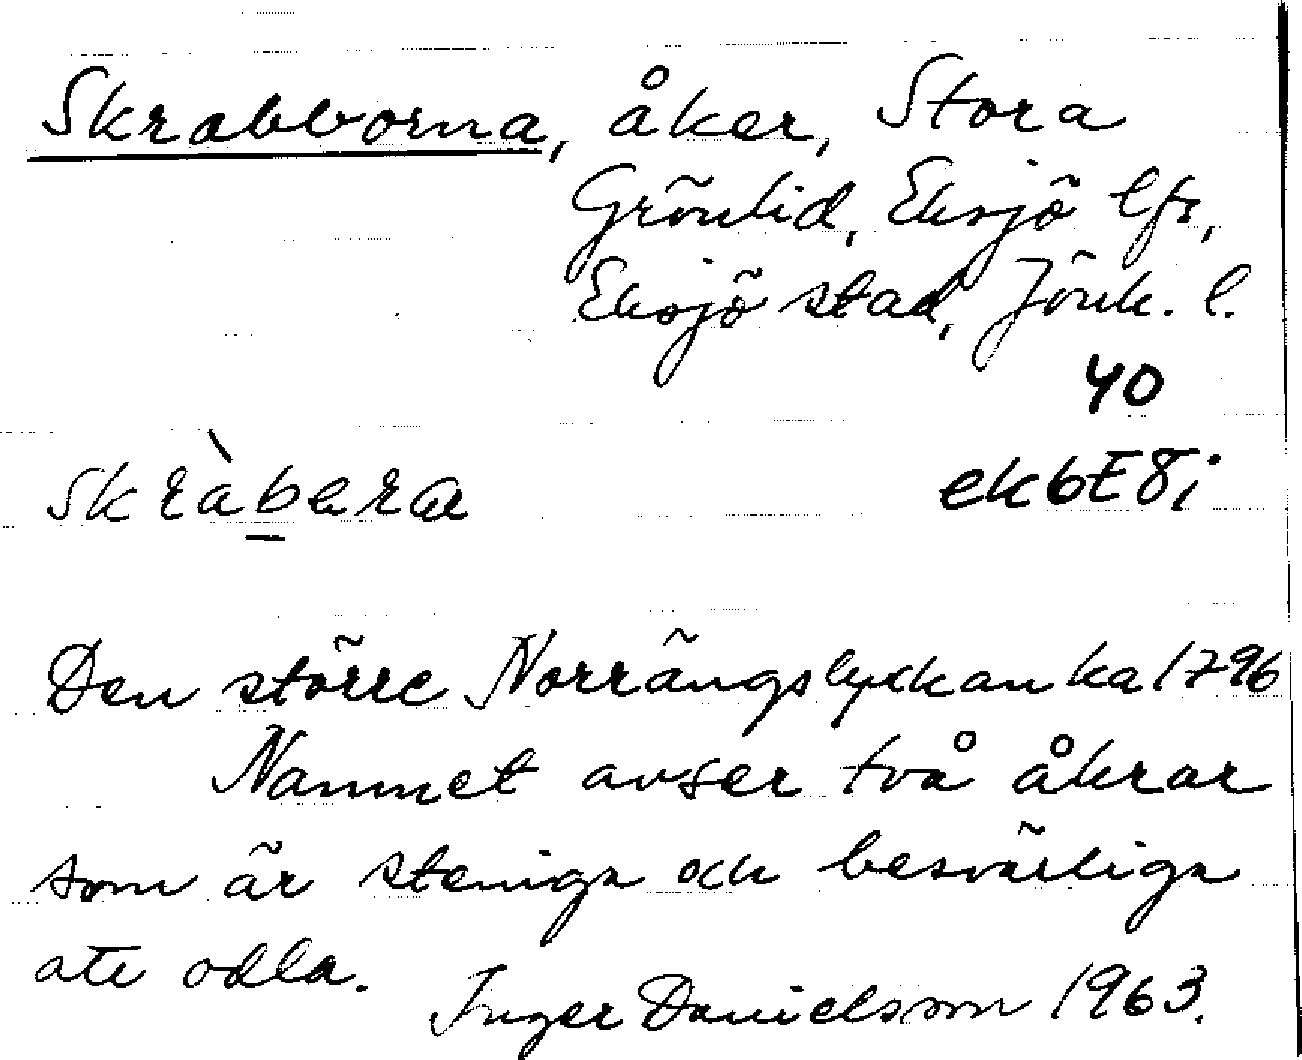 Skrabborna, åker, Stora
Grönlid, Eksjö lfs,
Eksjö stad, Jönk. l.
40
skràbera
ekbE8i
Den större Norrängslyckan ka 1796
Namnet avser två åkrar
som är steniga och besvärliga
att odla.
Inger Danielsson 1963.